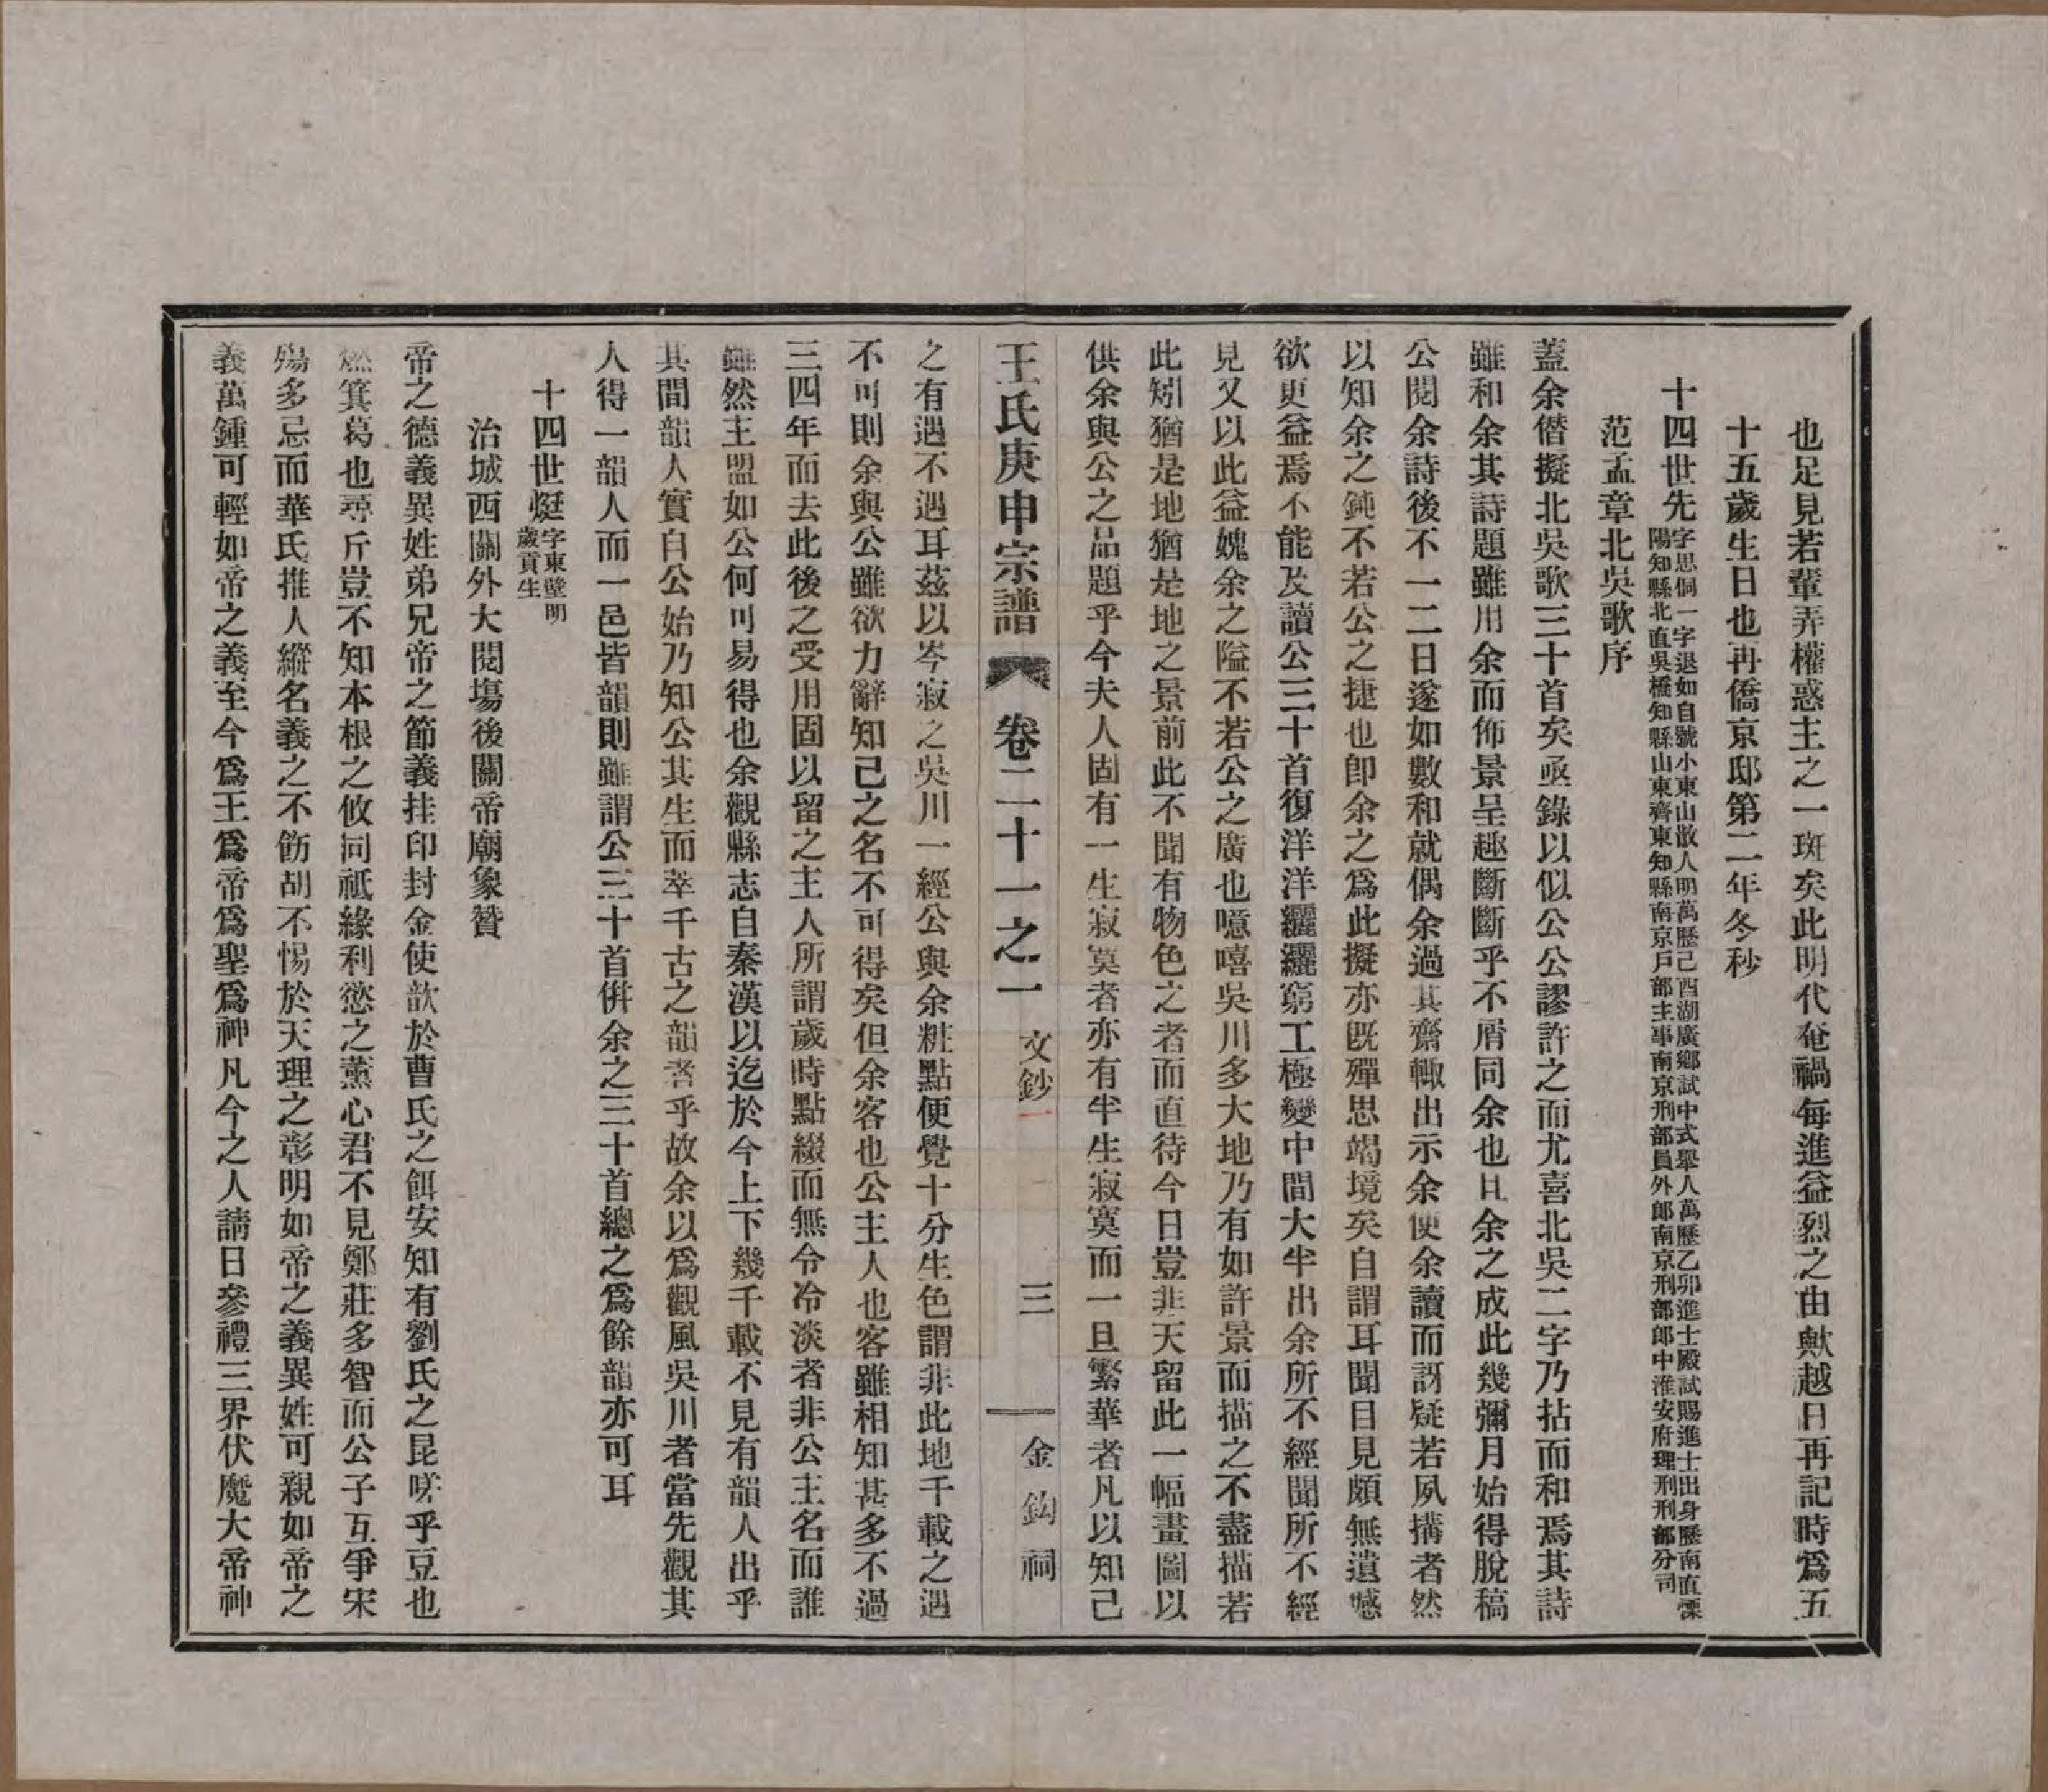 也足見若輩弄權惑主之一斑矣此明代奄禍每進益烈之由歟越日再記時爲五
十五歲生日也再僑京邸第二年冬秒
十四世先字思侗一字退如自號小東山散人明萬歷己酉湖廣鄉試中式舉人萬歷乙卯進士殿試賜進士出身歷南直溧
陽知縣北直吳橋知縣山東齊東知縣南京戶部主事南京刑部員外郎南京刑部郎中淮安府理刑刑部分司
范孟章北吳歌序
蓋余僭擬北吳歌三十首矣亟錄以似公公謬許之而尤喜北吳二字乃拈而和焉其詩
雖和余其詩題雖用余而佈景呈趣斷斷乎不屑同余也且余之成此幾彌月始得脫稿
公閱余詩後不一二日遂如數和就偶余過其齋輙出示余使余讀而訝疑若夙搆者然
以知余之鈍不若公之捷也卽余之爲此擬亦旣殫思竭境矣自謂耳聞目見頗無遺憾
欲更益焉不能及讀公三十首復洋洋纚纚窮工極變中間大半出余所不經聞所不經
見又以此益媿余之隘不若公之廣也噫嘻吳川多大地乃有如許景而描之不盡描若
此矧猶是地猶是地之景前此不聞有物色之者而直待今日豈非天留此一幅畫圖以
供余與公之品題乎今夫人固有一生寂寞者亦有半生寂寞而一旦繁華者凡以知己
王氏庚申宗譜 卷二十一之一 文鈔一 三 金鈎祠
之有遇不遇耳茲以岑寂之吳川一經公與余粧點便覺十分生色謂非此地千載之遇
不可則余與公雖欲力辭知己之名不可得矣但余客也公主人也客雖相知甚多不過
三四年而去此後之受用固以留之主人所謂歲時點綴而無令冷淡者非公主名而誰
雖然主盟如公何可易得也余觀縣志自秦漢以迄於今上下幾千載不見有韻人出乎
其間韻人實自公始乃知公其生而萃千古之韻者乎故余以爲觀風吳川者當先觀其
人得一韻人而一邑皆韻則雖謂公三十首倂余之三十首總之爲餘韻亦可耳
十四世㷗字東璧明
歲貢生
治城西關外大閱塲後關帝廟象贊
帝之德義異姓弟兄帝之節義挂印封金使歆於曹氏之餌安知有劉氏之昆嗟乎豆也
燃箕葛也尋斤豈不知本根之攸同祗緣利慾之薰心君不見鄭莊多智而公子互爭宋
殤多忌而華氏推人縱名義之不飭胡不惕於天理之彰明如帝之義異姓可親如帝之
義萬鍾可輕如帝之義至今爲王爲帝爲聖爲神凡今之人請日參禮三界伏魔大帝神